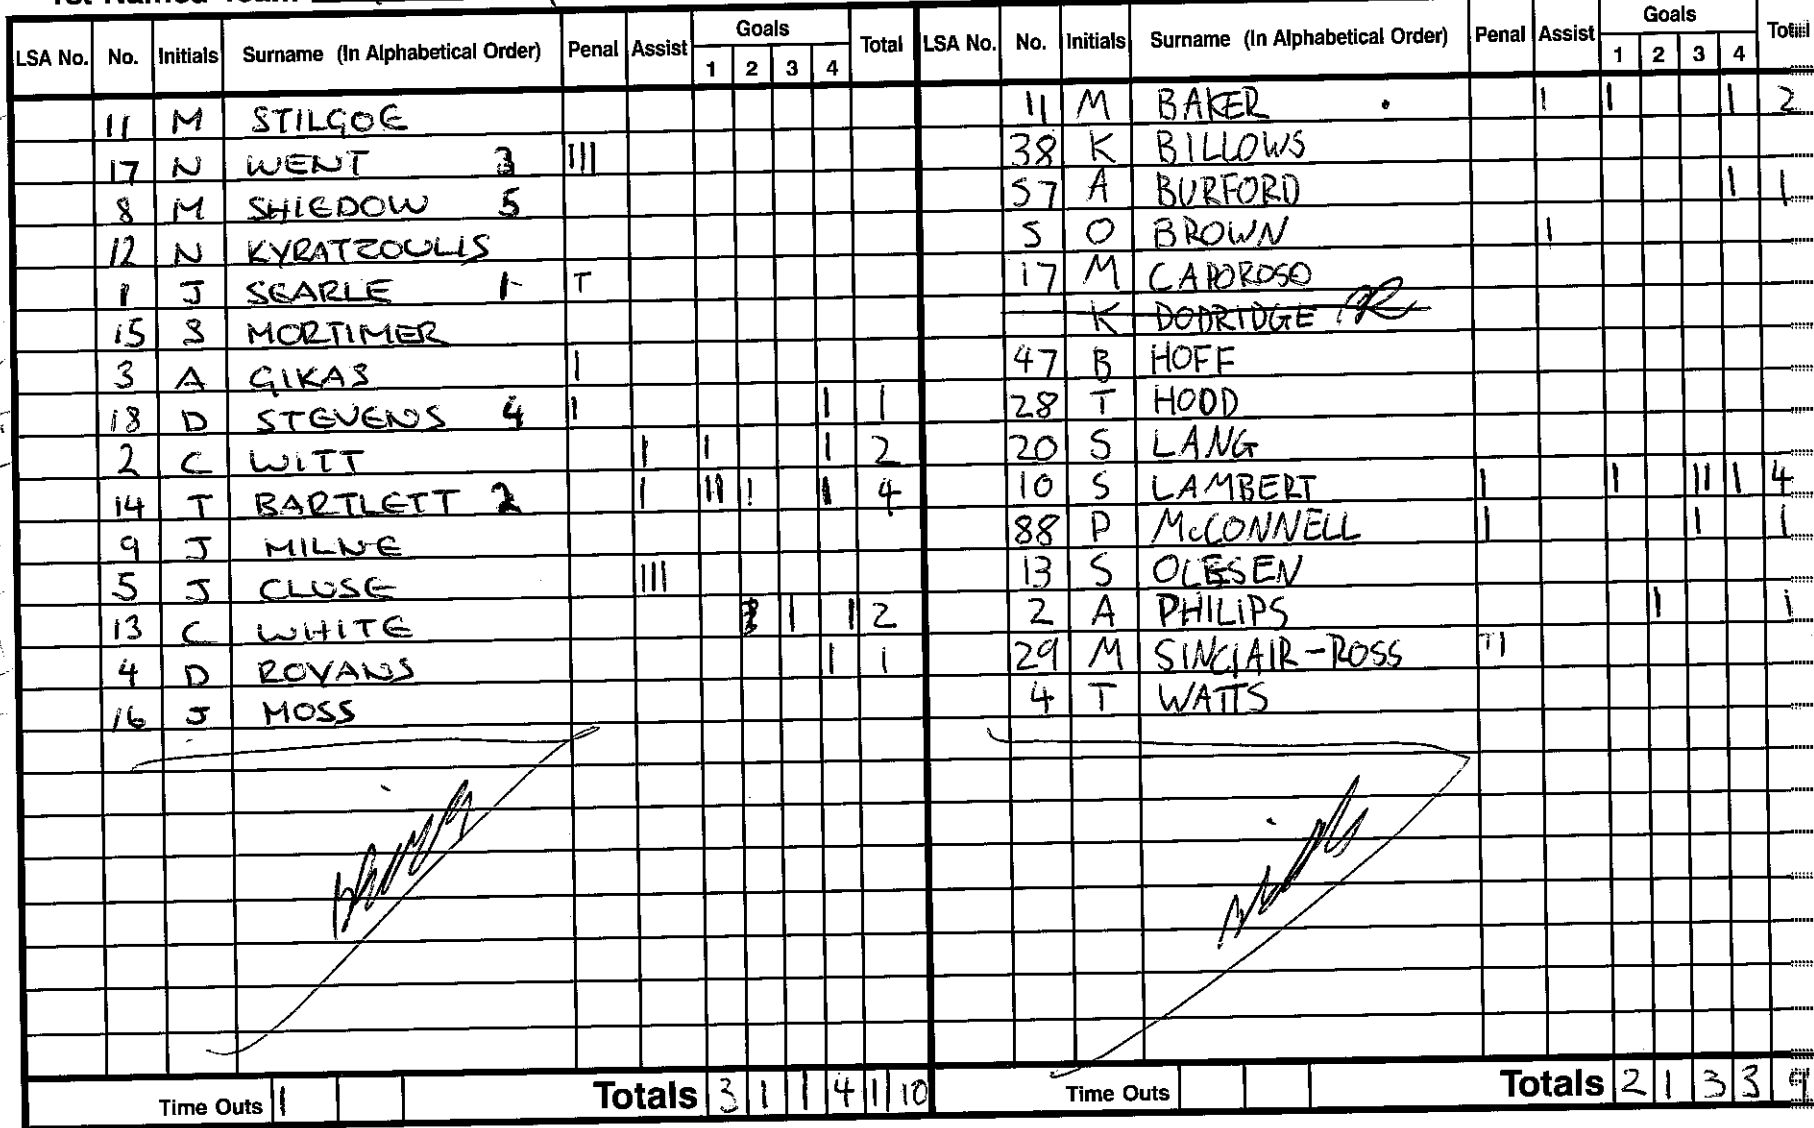 1st Named Team
LSA No. No. Initials Surname (In Alphabetical Order) Penal Assist Goals 1 2 3 4 Total
11 M STILGOE
17 N WENT 3 III
8 M SHIEDOW 5
12 N KYRATZOULIS
1 J SEARLE 1 T
15 S MORTIMER
3 A GIKAS I
18 D STEVENS 4 I I 1
2 C WITT I I I 2
14 T BARTLETT 2 I II I I 4
9 J MILNE
5 J CLUSE III
13 C WHITE I I 2
4 D ROVANS I 1
16 J MOSS
Time Outs 1 Totals 3 1 1 4 1 10
LSA No. No. Initials Surname (In Alphabetical Order) Penal Assist Goals 1 2 3 4 Total
11 M BAKER I I I 2
38 K BILLOWS
57 A BURFORD I 1
5 O BROWN I
17 M CAPOROSO
K DODRIDGE
47 B HOFF
28 T HODD
20 S LANG
10 S LAMBERT I I II I 4
88 P McCONNELL I I 1
13 S OLESEN
2 A PHILIPS I 1
29 M SINCLAIR-ROSS II
4 T WATTS
Time Outs Totals 2 1 3 3 9